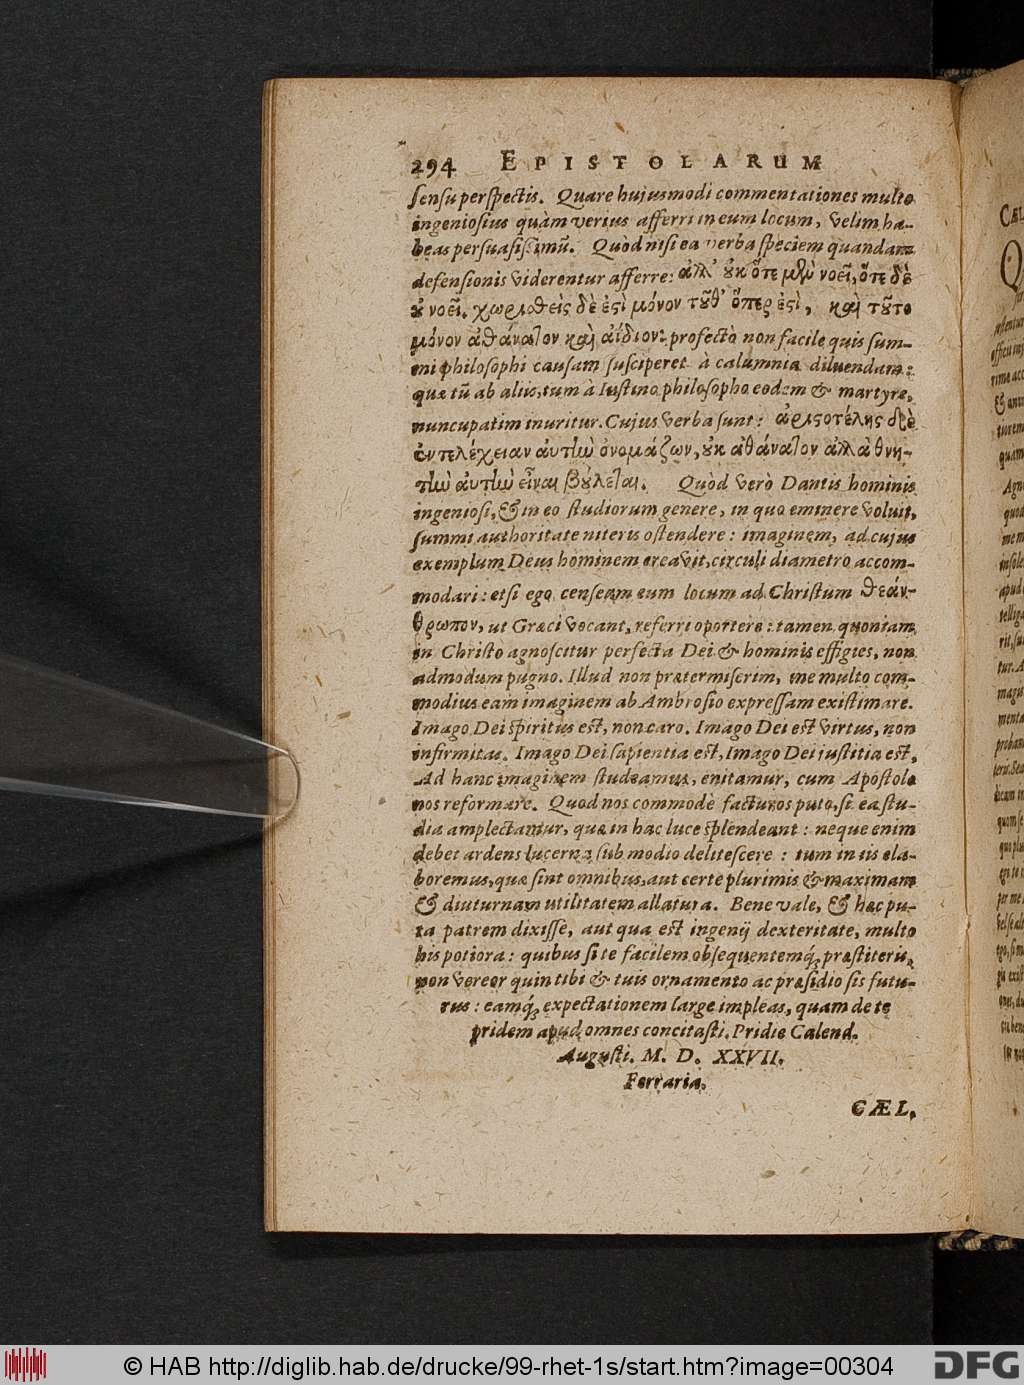 294 EPISTOLARUM
sensu perspectis. Quare hujusmodi commentationes multo
ingeniosius quàm verius afferri in eum locum, velim ha-
beas persuasissimũ. Quòd nisi ea verba speciem quandam
defensionis viderentur afferre: ἀλλ' ȣ̓κ ὅτε μὲν νοεῖ, ὅτε δὲ
ȣ̓ νοεῖ. χωριαθεὶς δὲ ἐστὶ μόνον τȣ̃θ' ὅπερ ἐστὶ, καὶ τȣ̃το
μόνον ἀθάνατον καὶ ἀΐδιον: profectò non facile quis sum-
mi philosophi causam susciperet à calumnia diluendam:
quæ tũ ab aliis, tum à Iustino philosopho eodem & martyre,
nuncupatim inuritur. Cujus verba sunt: ἀριστοτέλης δὲ
ἐντελέχειαν αὐτὴν ὀνομάζων, ȣ̓κ ἀθάνατον ἀλλὰ θνη-
τὴν αὐτὴν εἶναι βȣ́λεται. Quòd verò Dantis hominis
ingeniosi, & in eo studiorum genere, in quo eminere voluit,
summi authoritate niteris ostendere: imaginem, ad cujus
exemplum Deus hominem creavit, circuli diametro accom-
modari: etsi ego censeam eum locum ad Christum θεάν-
θρωπον, ut Græci vocant, referri oportere: tamen quoniam
in Christo agnoscitur perfecta Dei & hominis effigies, non
admodum pugno. Illud non prætermiserim, me multo com-
modius eam imaginem ab Ambrosio expressam existimare.
Imago Dei spiritus est, non caro. Imago Dei est virtus, non
infirmitas. Imago Dei sapientia est, Imago Dei justitia est.
Ad hanc imaginem studeamus, enitamur, cum Apostolo
nos reformare. Quod nos commodè facturos puto, si ea stu-
dia amplectamur, quæ in hac luce splendeant: neque enim
debet ardens lucerna sub modio delitescere: tum in iis ela-
boremus, quæ sint omnibus, aut certe plurimis & maximam
& diuturnam utilitatem allatura. Bene vale, & hæc pu-
ta patrem dixisse, aut qua est ingenij dexteritate, multo
his potiora: quibus si te facilem obsequentemq́; præstiteris,
non vereor quin tibi & tuis ornamento ac præsidio sis futu-
rus: eamq́; expectationem large impleas, quam de te
pridem apud omnes concitasti. Pridie Calend.
Augusti. M. D. XXVII.
Ferrariæ.
CÆL.
© HAB http://diglib.hab.de/drucke/99-rhet-1s/start.htm?image=00304
DFG